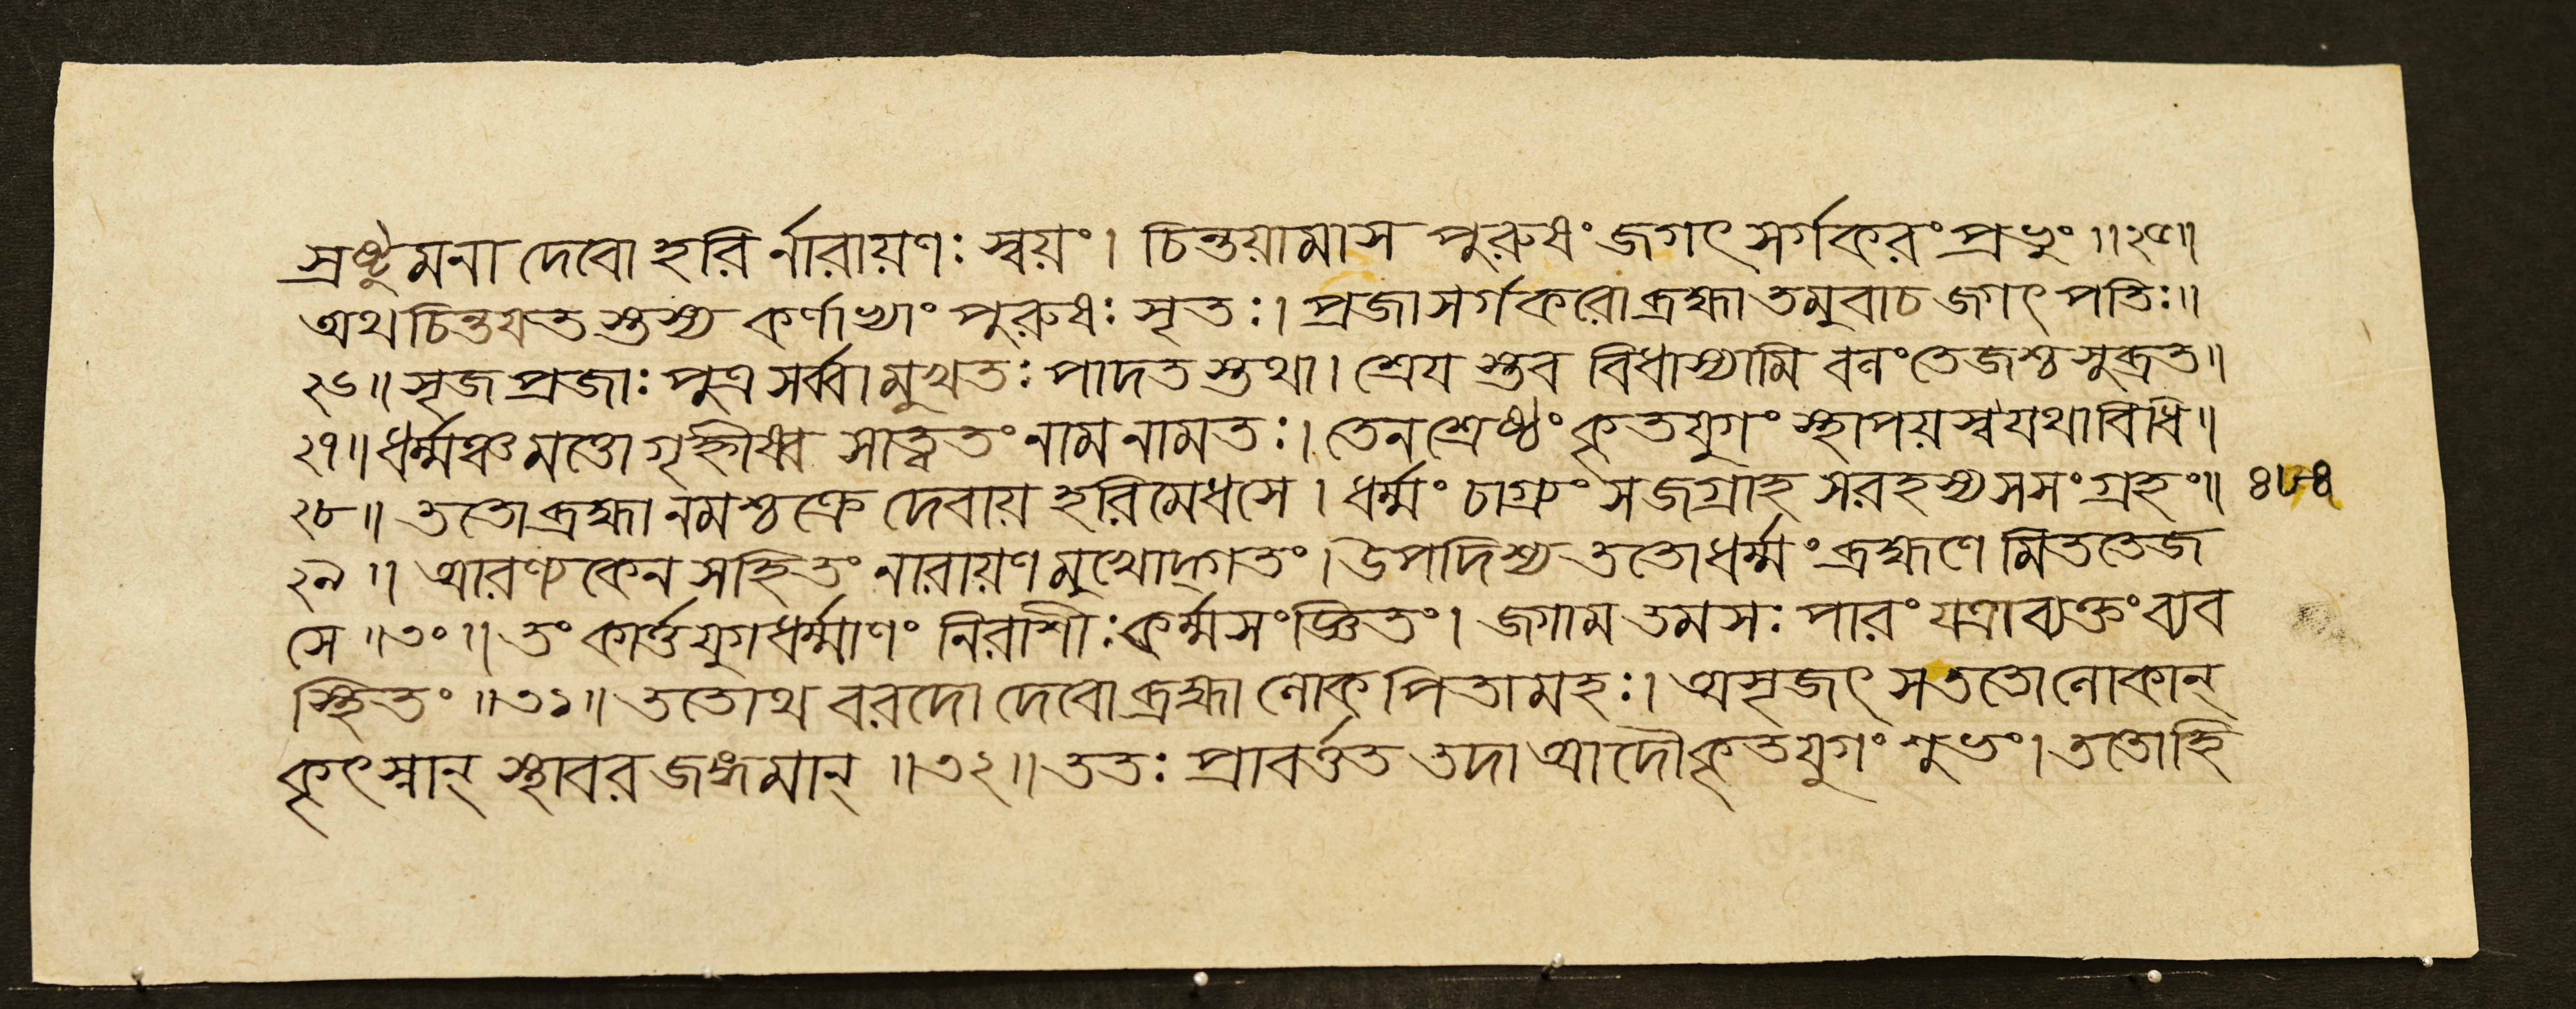 স্রষ্টুমনা দেবো হরি র্নারায়ণঃ স্বয়ং। চিন্তয়ামাস পুরুষং জগৎ সর্গকরং প্রভুং ॥২৫॥
অথ চিন্তযত স্তস্য কর্ণাভ্যাং পুরুষঃ সৃতঃ। প্রজাসর্গকরোব্রহ্মা তমুবাচ জগৎ পতিঃ॥
২৬॥ সৃজ প্রজাঃ পুত্র সর্ব্বা মুখতঃ পাদত স্তথা। শ্রেয স্তব বিধাস্যামি বলং তেজশ্চ সুব্রত॥
২৭॥ ধর্ম্মঞ্চ মত্তো গৃহ্নীষ্ব সাত্বতং নাম নামতঃ। তেন শ্রেষ্ঠং কৃতযুগং স্থাপয়স্ব যথাবিধি॥
২৮॥ ততোব্রহ্মা নমশ্চক্রে দেবায় হরিমেধসে। ধর্ম্মং চাগ্রুং সজগ্রাহ সরহস্য সসংগ্রহং॥ ৪৮৪
২৯॥ আরণ্যকেন সহিতং নারায়ণ মুখোদ্গতং। উপদিশ্য ততোধর্ম্মং ব্রহ্মণে মিততেজ
সে ॥৩০॥ তং কার্ত্তযুগধর্ম্মাণং নিরাশীঃকর্ম্মসংজ্ঞিতং। জগাম তমসঃ পারং যত্রাব্যক্তং ব্যব
স্থিতং ॥৩১॥ ততোথ বরদো দেবোব্রহ্মা লোক পিতামহঃ। অসৃজৎ সততোলোকান্
কৃৎস্নান্ স্থাবর জঙ্গমান্ ॥৩২॥ ততঃ প্রাবর্ত্তত তদা আদৌকৃতযুগং শুভং। ততোহি